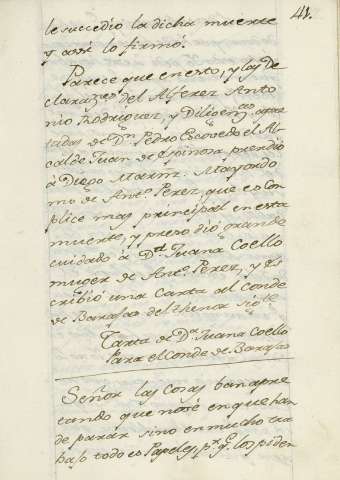 41.
le succedio la dicha muerte
y assi lo firmó.
Parece que en esto, y las De
claraz.es del Alferez Anto
nio Rodriguez, y Diligen.as apar
tadas de D.n Pedro Escovedo el Al
calde Juan de Espinosa prendio
à Diego Martin. Mayordo
mo de Ant.o Perez, que es Com
plice mas principal en esta
muerte, y preso dió grande
cuidado à D.a Juana Coello
muger de Ant.o Perez, y es
cribió una Carta al Conde
de Barajas del thenor sig.te
Carta de D.a Juana Coello
Para el Conde de Barajas
Señor las cosas ban apre
tando que no sé en que han
de parar sino en mucho tra
bajo todo es Papeles, p.r q.e los piden